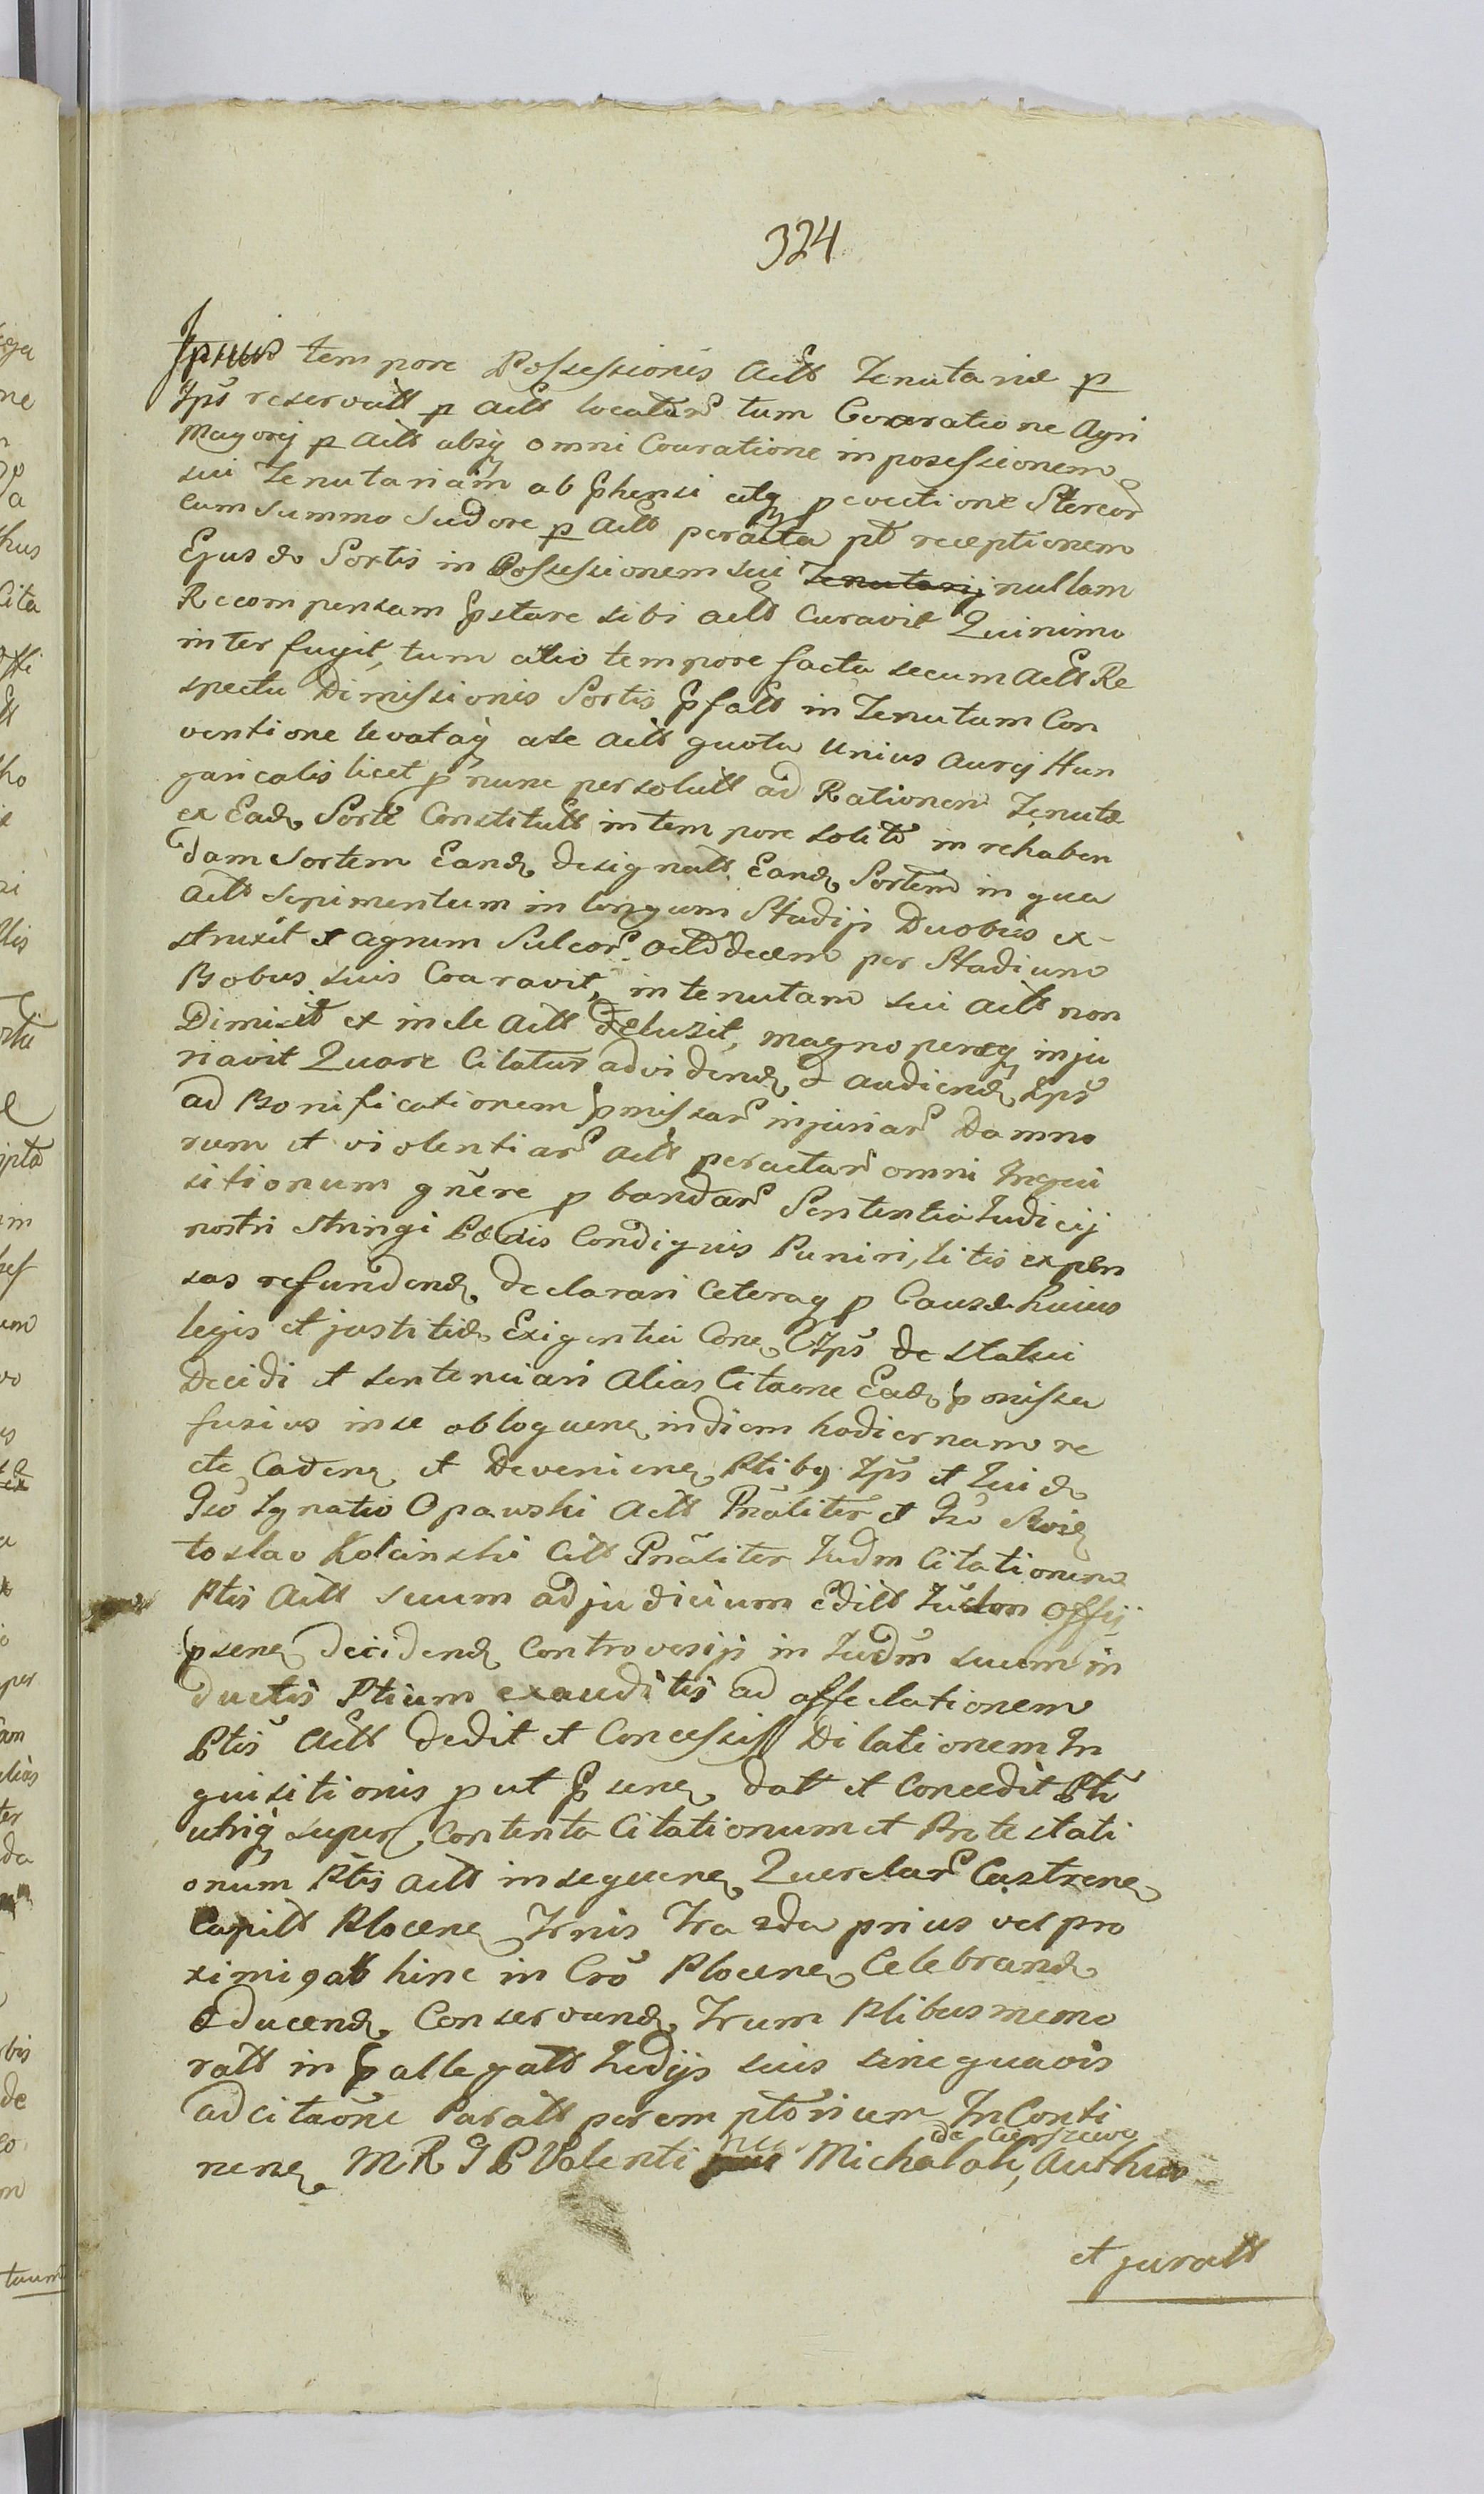 324
tempore Possessionis Actt Tenutariæ p
Ips reservatt p Actt locator tum Coneratione Agri
Mayorj p Actt absq omni Couratione in posessionem
sui Tenutariam ab phensi atq p evectione Stercor
cum summo sudore p Actt peracta pt receptionem
Ejusd Sortis in Possessionem sui Tenutarij nullam
Recompensam pstare sibi actt Curavit Quinimo
interfugit, tum alio tempore facta secum Actt Re
spectu Dimissionis Sortis pfatt in Tenutam Con
ventione levataq a se Actt quota unius Aurej Hun
garicalis licet p nunc persolutt ad Rationem Tenutæ
ex Ead Sorte Constitutt in tempore solito in rehaben
dam Sortem Eand designatt Eand Sortem in qua
Actt Sepimentum in longum Stadij Duobus ex-
struxit et agrum Sulcor octodecem per Stadium
Bobus suis Coaravit, in tenutam sui Actt non
Dimisit et inde Actt delusit, magnopereq inju
riavit Quare Citatur ad vidend & audiend Ips
ad Bonificationem pmissar injuriar Damno
rum et violentiar Actt peractar omni Inqui
sitionum gnere p bandar Sententia Judicij
nostri stringi Pænis Condignis Puniri, litis expen
sas refundend declarari Ceteraq p Causæ huius
legis et justitiæ Exigentia Conc Ips de statui
Decidi et sentenciari alias Citaone Ead pmissa
fusius in se obloquenc in diem hodiernam re
cte Cadenc et Devenienc Ptibq Ips et quid
Gso Ignatio Opawski Actt Pnaliter et Gso Swię
toslao Kolcinski Citt Pnaliter Judm Citationem
Ptis Actt suum ad judicium
psenc decidend Controvesijs in Judm suum in
ductis Ptium exauditis ad affectationem
Ptis Actt dedit et Concessit Dilationem In
quisitionis put psenc dat et Concedit Pti
utriq super Contenta Citationum et Protestati
onum Ptis Actt in sequenc Querelar Castrenc
Capitt Plocenc Trnis Tra 2da prius vel pro
ximiq ab hinc in Cro Plocenc Celebrand
educend Conservand Trum Ptibus memo
ratt in pallegatt Judijs suis sine quavis
ad citaone Paratt peremptorium In Conti
nenc M R G P Valenti no Michalak, Authus
et juratt